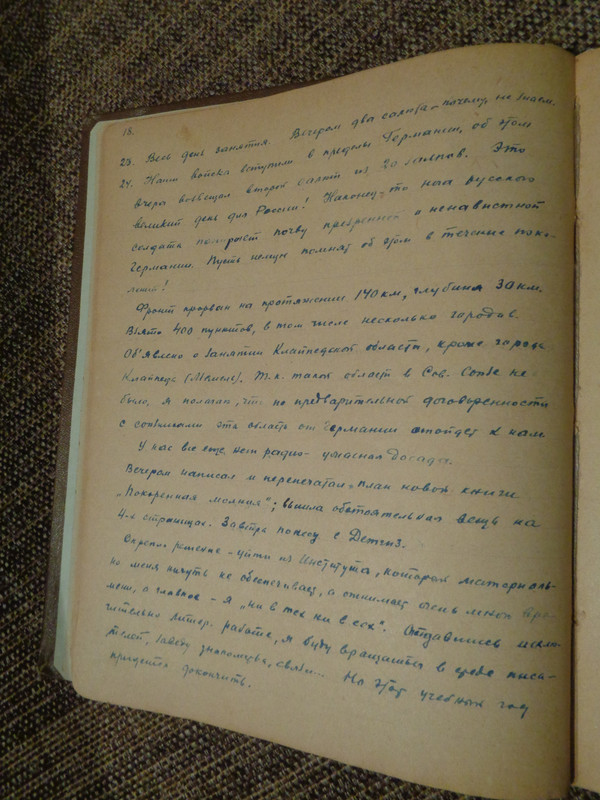 18.
23. Весь день занятия. Вечером два салюта - почему, не знаем.
24. Наши войска вступили в пределы Германии, об этом
вчера возвещал второй салют из 20 залпов. Это
великий день для России! Наконец-то нога русского
солдата попирает почву презренной и ненавистной
Германии. Пусть немцы помнят об этом в течение поко-
лений!
Фронт прорван на протяжении 140 км, глубина 30 км.
Взято 400 пунктов, в том числе несколько городов.
Об'явлено о занятии Клайпедской области, кроме города
Клайпеда (Мемель). Т.к. такой области в Сов. Союзе не
было, я полагаю, что по предварительной договоренности
с союзниками эта область от Германии отойдет к нам.
У нас все еще нет радио - ужасная досада.
Вечером написал и перепечатал план новой книги
"Покоренная молния"; вышла обстоятельная вещь на
4-х страницах. Завтра понесу в Детгиз.
Окрепло решение - уйти из Института, который материаль-
но меня ничуть не обеспечивает, а отнимает очень много вре-
мени, а главное - я "ни в тех ни в сех". Отдавшись исклю-
чительно литер. работе, я буду вращаться в среде писа-
телей, заведу знакомства, связи... Но этот учебный год
придется закончить.